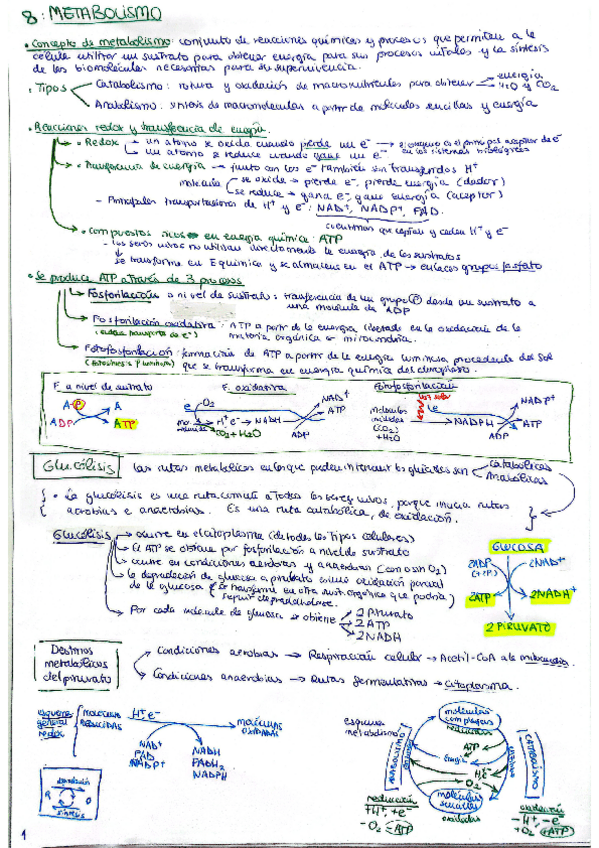 8: METABOLISMO
• Concepto de metabolismo: conjunto de reacciones químicas y procesos que permiten a la
célula utilizar un sustrato para obtener energía para sus procesos vitales y la síntesis
de las biomoléculas necesarias para su supervivencia.
• Tipos
Catabolismo: rotura y oxidación de macronutrientes para obtener energía
H2O y CO2
Anabolismo: síntesis de macromoléculas a partir de moléculas sencillas y energía
• Reacciones redox y transferencia de energía.
• Redox un átomo se oxida cuando pierde un e-
un átomo se reduce cuando gana un e-
→ el oxígeno es el principal aceptor de e-
en los sistemas biológicos
• Transferencia de energía → junto con los e- también son transferidos H+
molécula se oxida → pierde e-, pierde energía (dador)
se reduce → gana e-, gana energía (aceptor)
- Principales transportadores de H+ y e-: NAD+, NADP+, FAD.
coenzimas que captan y ceden H+ y e-
• compuestos ricos en energía química: ATP
- los seres vivos no utilizan directamente la energía de los sustratos
se transforma en E química y se almacena en el ATP → enlaces grupos fosfato
• Se produce ATP a través de 3 procesos
Fosforilación a nivel de sustrato: transferencia de un grupo P desde un sustrato a
una molécula de ADP
Fosforilación oxidativa: ATP a partir de la energía liberada en la oxidación de la
(cadena transporte de e-) materia orgánica → mitocondria.
Fotofosforilación: formación de ATP a partir de la energía luminosa procedente del Sol
que se transforma en energía química del cloroplasto.
F. a nivel de sustrato
F. oxidativa
Fotofosforilación
A-P A
ADP ATP
e- O2 NAD+
ATP
H+ e- → NADH
CO2 + H2O ADP
luz solar NADP+
e-
moléculas
(CO2)
+ H2O
NADPH ATP
ADP
Glucólisis
Las rutas metabólicas en las que pueden intervenir los glúcidos son catabólicas
Anabólicas
• La glucólisis es una ruta común a todos los seres vivos, porque inicia rutas
aerobias e anaerobias. Es una ruta catabólica, de oxidación.
Glucólisis → ocurre en el citoplasma (de todos los tipos celulares)
El ATP se obtiene por fosforilación a nivel de sustrato
ocurre en condiciones aerobias y anaerobias (con o sin O2)
la degradación de glucosa a piruvato es una oxidación parcial
de la glucosa (se transforma en otra sust. orgánica que podría
seguir degradándose)
Por cada molécula de glucosa se obtiene 2 Piruvato
2 ATP
2 NADH
GLUCOSA
2ADP 2NAD+
(+2Pi)
2ATP 2NADH+
2 PIRUVATO
Destinos
metabólicos
del piruvato
Condiciones aerobias → Respiración celular → Acetil-CoA a la mitocondria.
Condiciones anaerobias → Rutas fermentativas → Citoplasma.
esquema
general
redox
MOLÉCULAS
REDUCIDAS
H+ e-
moléculas
OXIDADAS
NAD+
FAD
NADP+
NADH
FADH2
NADPH
R O
síntesis
esquema
metabolismo
moléculas
complejas
reducidas
ATP
Energía
H+, e-
O2
moléculas
sencillas
oxidadas
ANABOLISMO
CATABOLISMO
reducción
+H+, +e-
-O2 -ATP
oxidación
-H+, -e-
+O2 +ATP
1